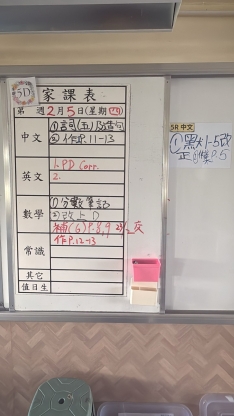 5D 家課表
第 週 2月5日(星期四)
中文
①詞(五)及造句
②作P.11-13
英文
1. PD Corr.
2.
數學
①分數筆記
②改上D
補(6)P.8,9
常識
作P.12-13
其它
值日生
5R 中文
①黑大1-5改